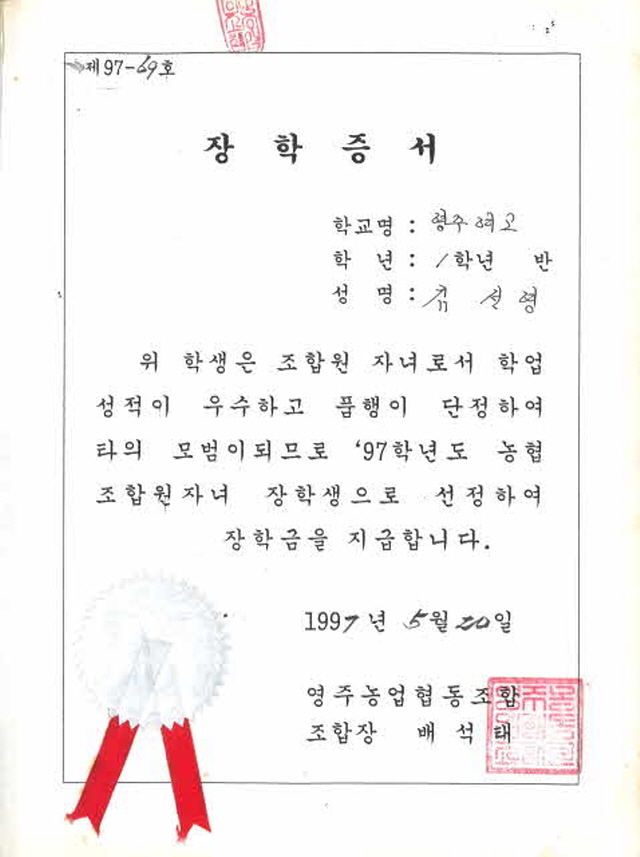 제97-69호
장 학 증 서
학교명 : 영주여고
학 년 : 1학년 반
성 명 : 설영
위 학생은 조합원 자녀로서 학업
성적이 우수하고 품행이 단정하여
타의 모범이되므로 '97학년도 농협
조합원자녀 장학생으로 선정하여
장학금을 지급합니다.
1997년 5월 20일
영주농업협동조합
조합장 배석태